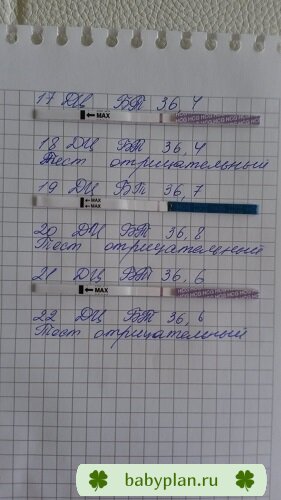 17 ДЦ БТ 36,4
MAX
HCG HCG HCG
18 ДЦ БТ 36,4
Тест отрицательный
19 ДЦ БТ 36,7
MAX
MAX
20 ДЦ БТ 36,8
Тест отрицательный
21 ДЦ БТ 36,6
MAX
HCG HCG HCG
22 ДЦ БТ 36,6
Тест отрицательный
babyplan.ru